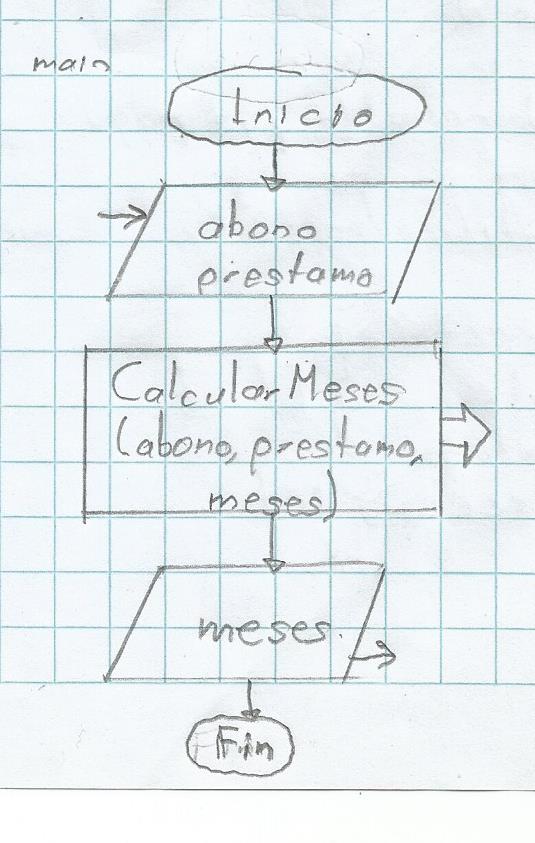 main
Inicio
abono
prestamo
Calcular Meses
(abono, prestamo,
meses)
meses
Fin